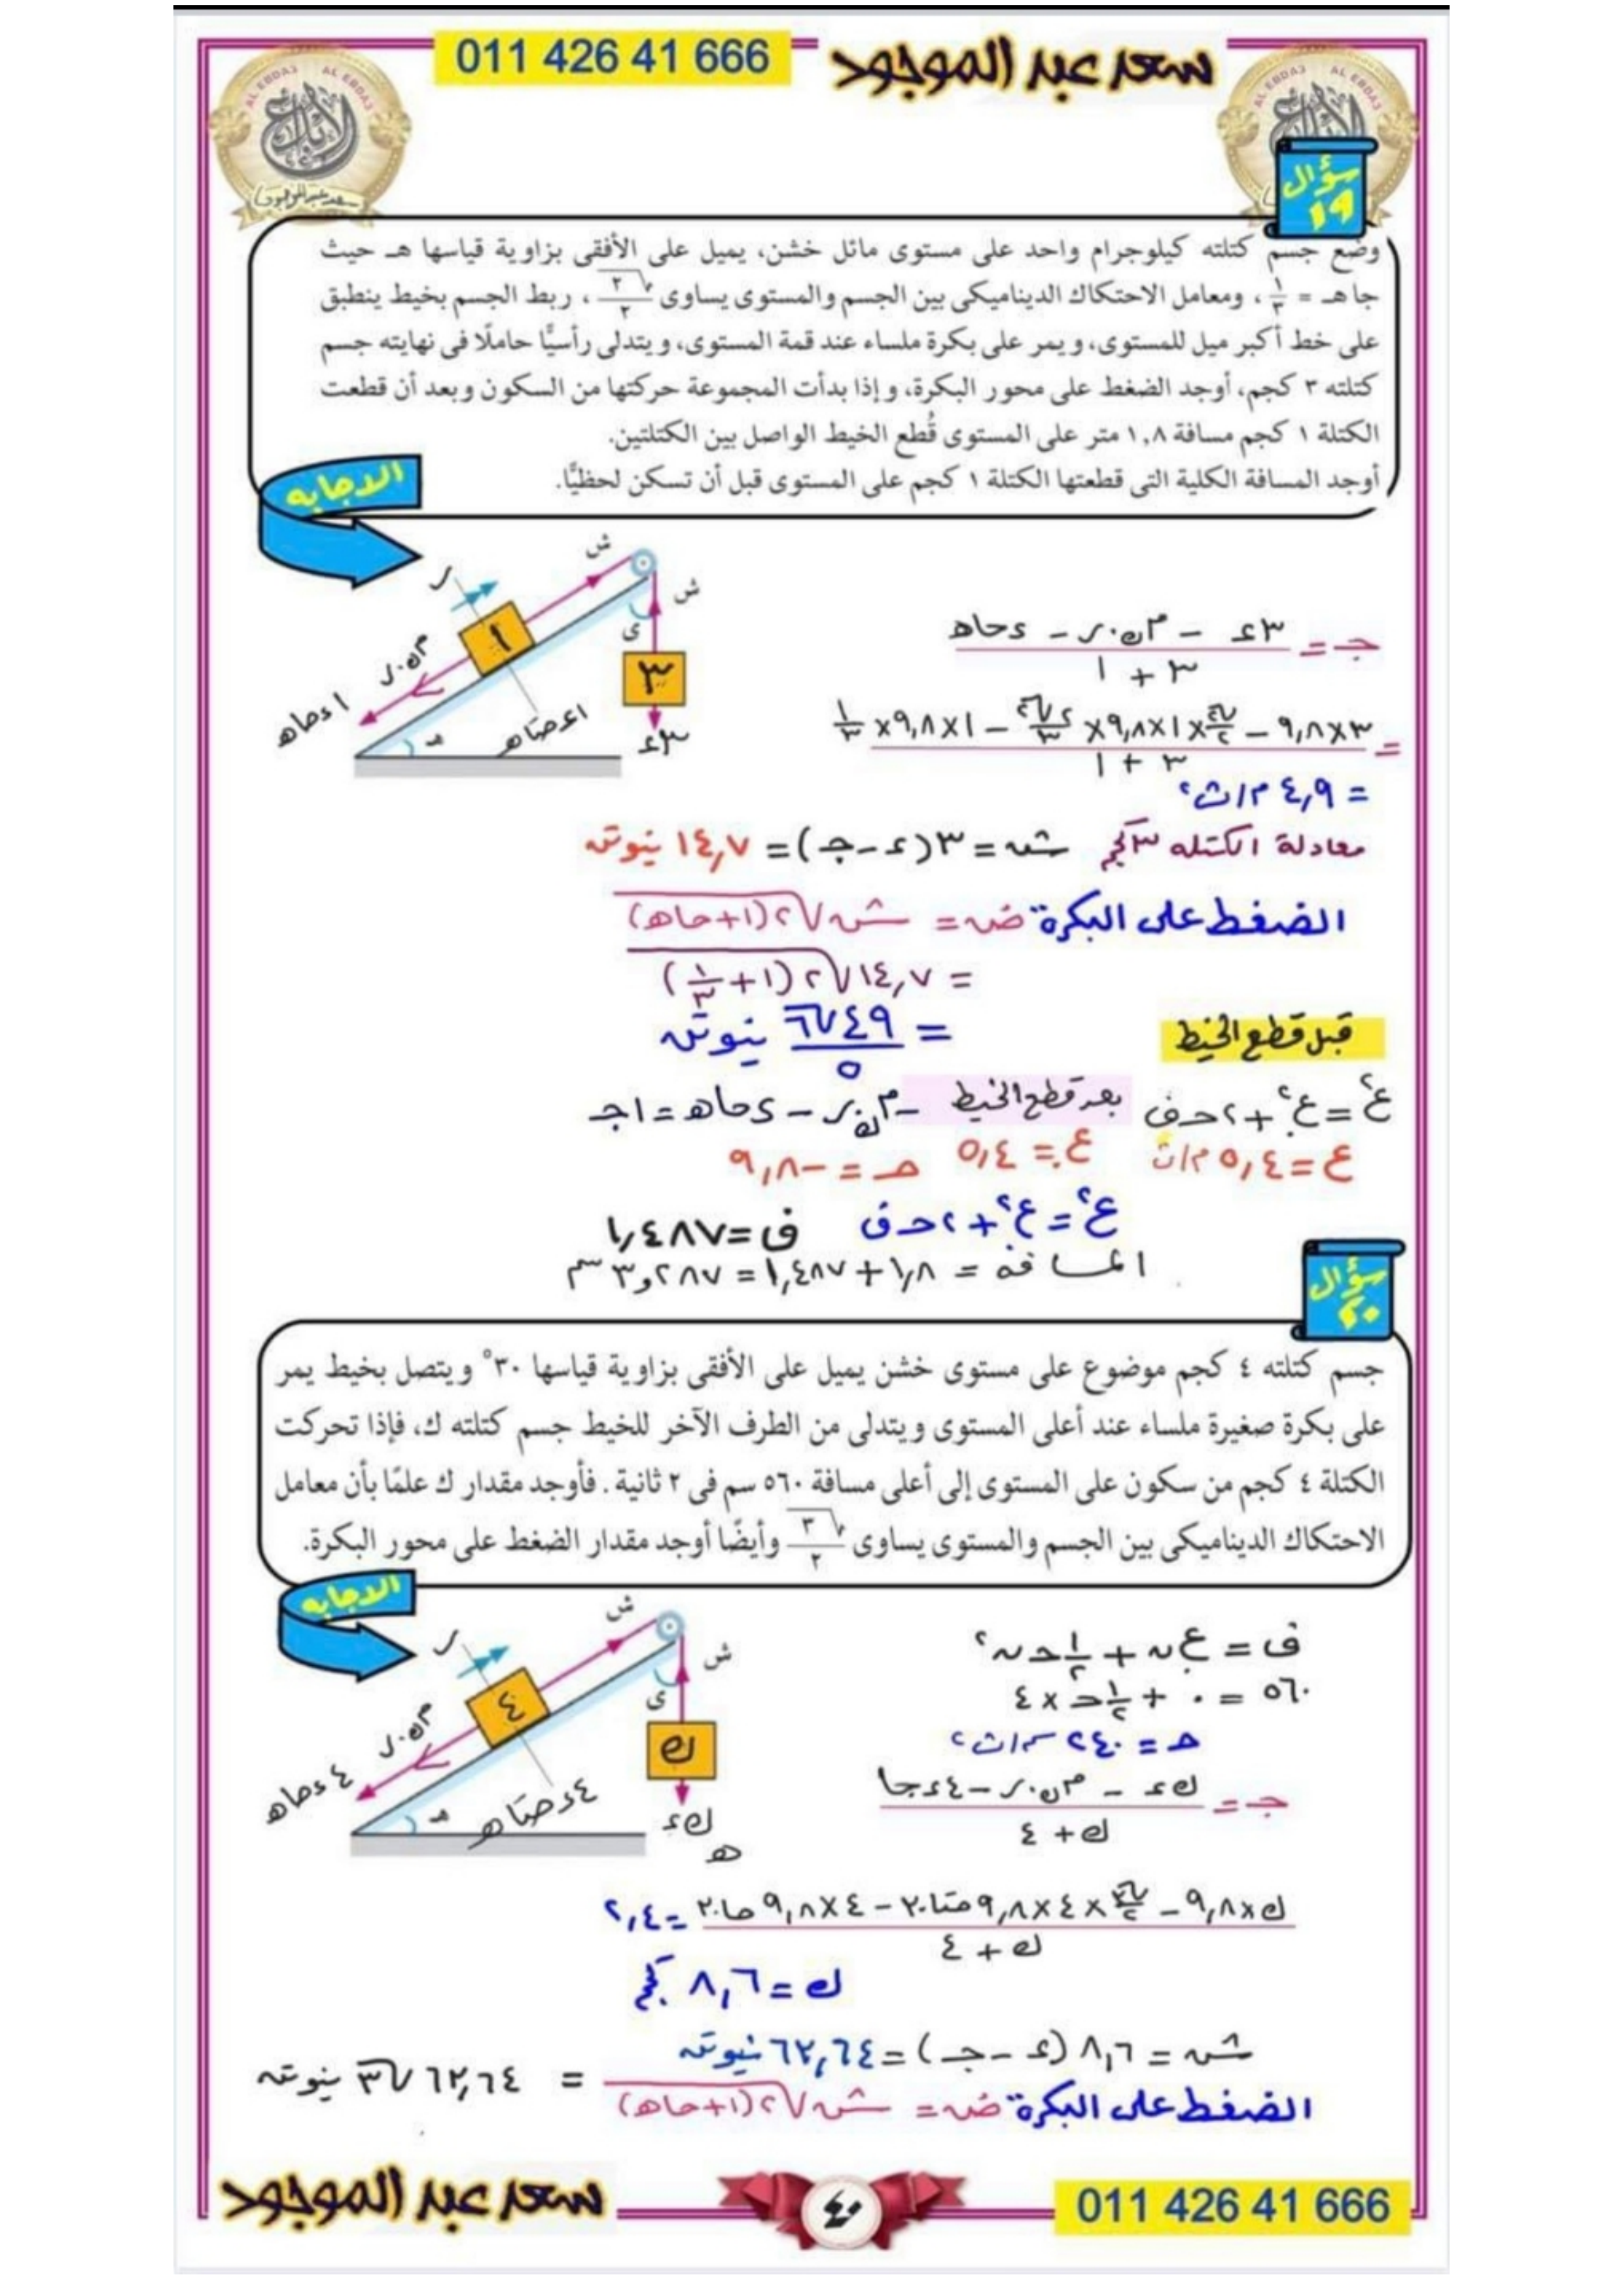 011 426 41 666
سعد عبد الموجود
AL EBDA3 AL EBDA3
الابداع
سعد عبد الموجود
AL EBDA3 AL EBDA3
سؤال
١٩
وضع جسم كتلته كيلوجرام واحد على مستوى مائل خشن، يميل على الأفقى بزاوية قياسها هـ حيث
جا هـ = ١/٣ ، ومعامل الاحتكاك الديناميكى بين الجسم والمستوى يساوى √٢/٢ ، ربط الجسم بخيط ينطبق
على خط أكبر ميل للمستوى، ويمر على بكرة ملساء عند قمة المستوى، ويتدلى رأسيًّا حاملًا فى نهايته جسم
كتلته ٣ كجم، أوجد الضغط على محور البكرة، وإذا بدأت المجموعة حركتها من السكون وبعد أن قطعت
الكتلة ١ كجم مسافة ١,٨ متر على المستوى قُطع الخيط الواصل بين الكتلتين.
أوجد المسافة الكلية التى قطعتها الكتلة ١ كجم على المستوى قبل أن تسكن لحظيًّا.
الاجابه
ر
ش
ش
ى
١
٣
م ك . ر
١ ء حا هـ
١ ء حتا هـ
٣ ء
هـ
جـ = (٣ء - م ك . ر - ء حا هـ) / (٣ + ١)
= (٣×٩,٨ - √٢/٢ ×١×٩,٨× ٢√٢/٣ - ١×٩,٨× ١/٣) / (٣ + ١)
= ٤,٩ م/ث٢
معادلة الكتله ٣ كجم شـ = ٣(ء - جـ) = ١٤,٧ نيوتن
الضغط على البكرة ضـ = شـ √٢(١+حا هـ)
= ١٤,٧ √٢(١+ ١/٣)
= ٤٩√٦/٥ نيوتن
قبل قطع الخيط
ع٢ = ع.٢ + ٢ حـ ف
ع = ٥,٤ م/ث
بعد قطع الخيط
- م ك . ر - ء حا هـ = ١ جـ
ع. = ٥,٤ حـ = -٩,٨
ع٢ = ع.٢ + ٢ حـ ف ف = ١,٤٨٧
المسافه = ١,٨ + ١,٤٨٧ = ٣,٢٨٧ سم
سؤال
٢٠
جسم كتلته ٤ كجم موضوع على مستوى خشن يميل على الأفقى بزاوية قياسها ٣٠° ويتصل بخيط يمر
على بكرة صغيرة ملساء عند أعلى المستوى ويتدلى من الطرف الآخر للخيط جسم كتلته ك، فإذا تحركت
الكتلة ٤ كجم من سكون على المستوى إلى أعلى مسافة ٥٦٠ سم فى ٢ ثانية . فأوجد مقدار ك علمًا بأن معامل
الاحتكاك الديناميكى بين الجسم والمستوى يساوى √٣/٢ وأيضًا أوجد مقدار الضغط على محور البكرة.
الاجابه
ر
ش
ش
ى
٤
ك
م ك . ر
٤ ء حا هـ
٤ ء حتا هـ
ك ء
هـ
هـ
ف = ع. ن + ١/٢ حـ ن٢
٥٦٠ = ٠ + ١/٢ حـ × ٤
حـ = ٢٨٠ سم/ث٢
جـ = (ك ء - م ك . ر - ٤ ء جا) / (ك + ٤)
(ك×٩,٨ - √٣/٢ ×٤×٩,٨ حتا ٣٠ - ٤×٩,٨ حا ٣٠) / (ك + ٤) = ٢,٤
ك = ٨,٦ كجم
شـ = ٨,٦ (ء - جـ) = ٦٣,٦٤ نيوتن
الضغط على البكرة ضـ = شـ √٢(١+حا هـ) = ٦٣,٦٤ √٣ نيوتن
سعد عبد الموجود
٤٠
011 426 41 666